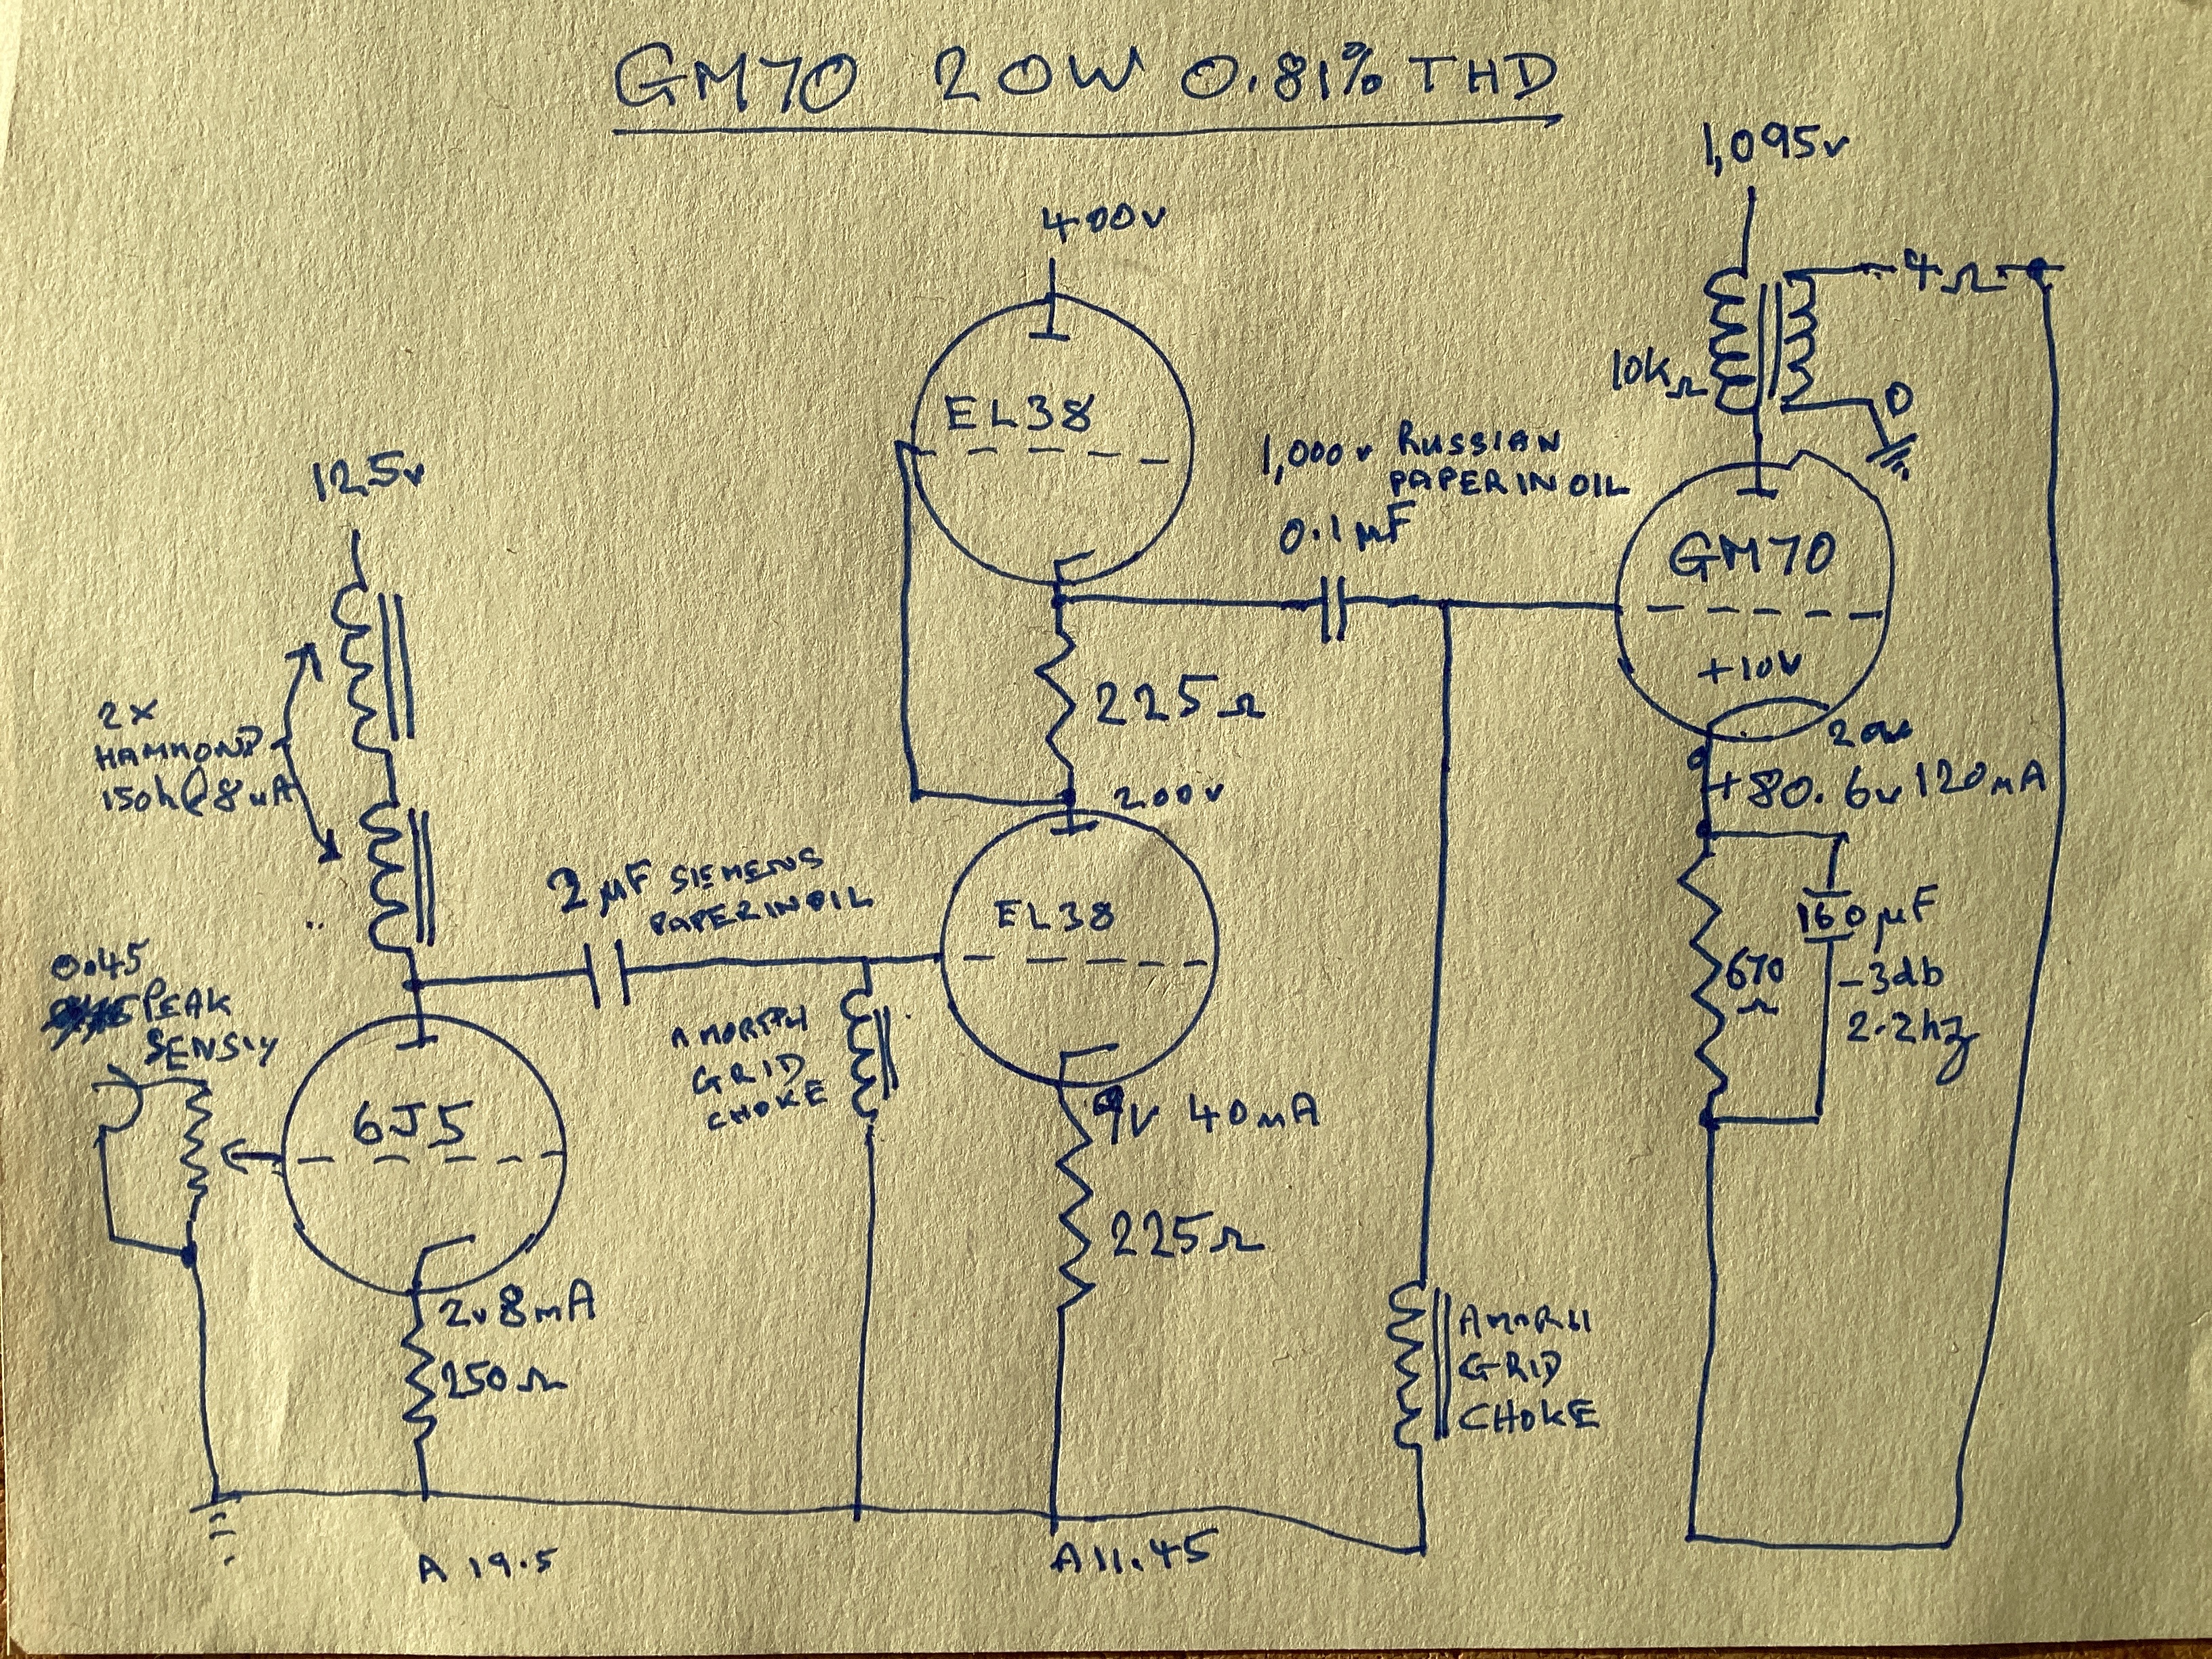 GM70 20W 0.81% THD
1,095v
400v
4Ω
10kΩ
0
EL38
1,000v RUSSIAN
PAPER IN OIL
0.1µF
125v
GM70
+10v
2 X
HAMMOND
150h @ 8mA
225Ω
200v
+80.6v 120mA
2µF SIEMENS
PAPER IN OIL
EL38
160µF
-3db
2.2hz
670
Ω
0.45
PEAK
SENSTY
AMORPH
GRID
CHOKE
6J5
9v 40mA
225Ω
2v 8mA
250Ω
GRID
CHOKE
A 19.5
A 11.45